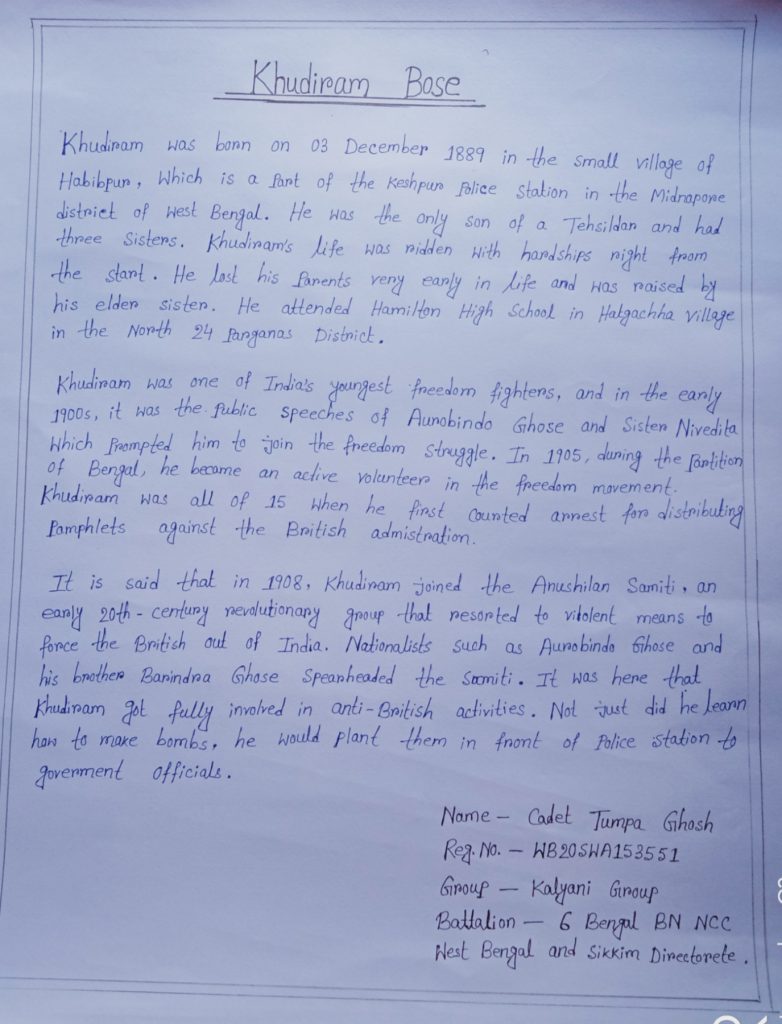 Khudiram Bose
Khudiram was born on 03 December 1889 in the small village of
Habibpur, which is a Part of the Keshpur Police Station in the Midnapore
district of West Bengal. He was the only son of a Tehsildar and had
three Sisters. Khudiram's life was ridden with hardships right from
the start. He lost his Parents very early in life and was raised by
his elder sister. He attended Hamilton High School in Hatgachha village
in the North 24 Parganas District.
Khudiram was one of India's youngest freedom fighters, and in the early
1900s, it was the Public speeches of Aurobindo Ghose and Sister Nivedita
Which Prompted him to join the freedom Struggle. In 1905, during the Partition
of Bengal, he became an active volunteer in the freedom movement.
Khudiram was all of 15 when he first Counted arrest for distributing
Pamphlets against the British admistration.
It is said that in 1908, Khudiram joined the Anushilan Samiti, an
early 20th-century revolutionary group that resorted to violent means to
force the British out of India. Nationalists such as Aurobindo Ghose and
his brother Barindra Ghose Spearheaded the Samiti. It was here that
Khudiram got fully involved in anti-British activities. Not just did he learn
how to make bombs, he would plant them in front of Police station to
goverment officials.
Name - Cadet Tumpa Ghosh
Reg. No. - WB20SWA153551
Group - Kalyani Group
Battalion - 6 Bengal BN NCC
West Bengal and Sikkim Directorete.